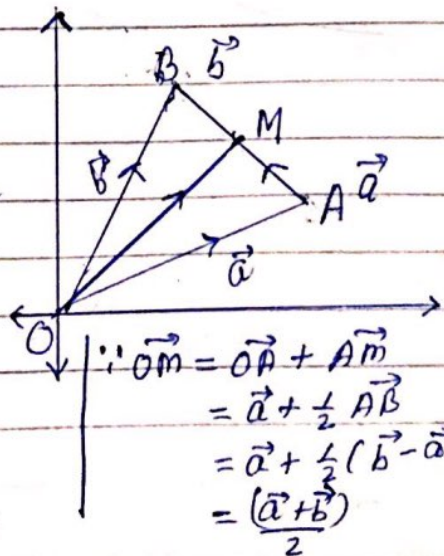 B b⃗
M
b⃗
A a⃗
a⃗
O
∵ OM⃗ = OA⃗ + AM⃗
= a⃗ + ½ AB⃗
= a⃗ + ½ (b⃗ - a⃗
= (a⃗ + b⃗)/2